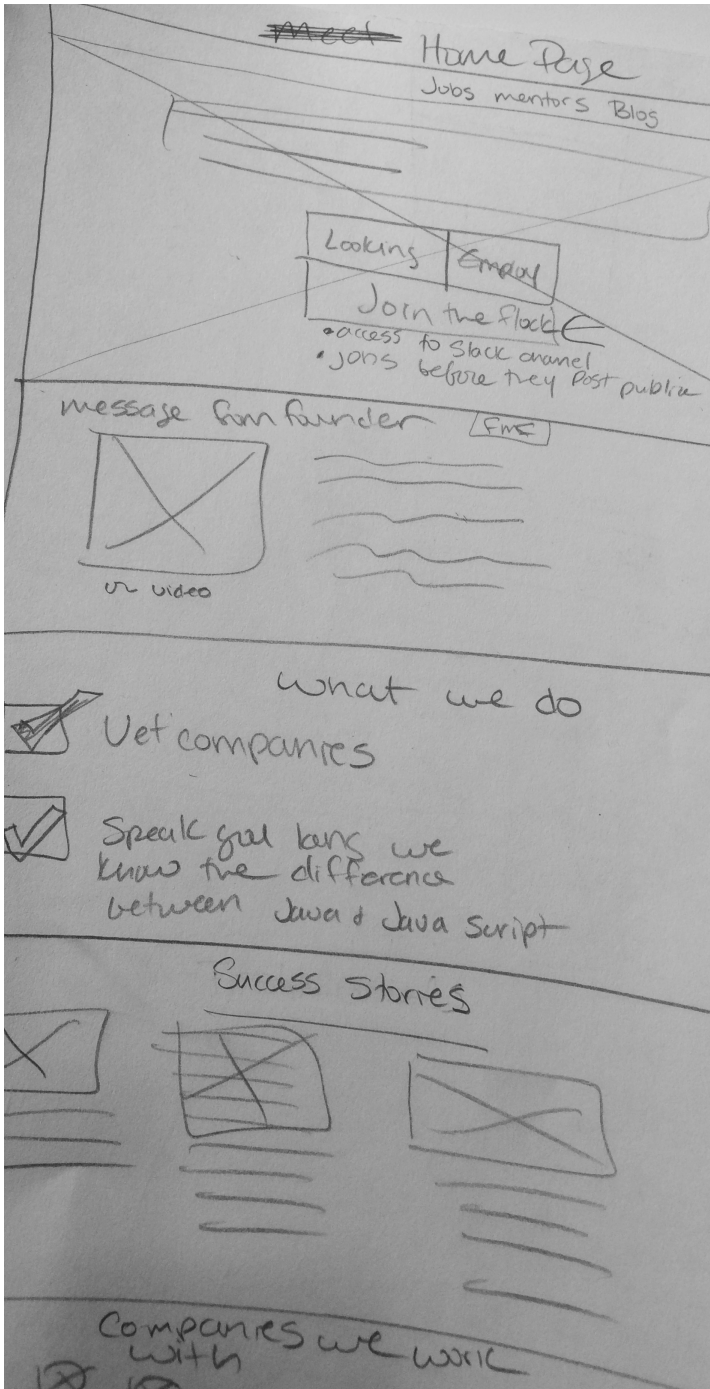 Meet Home Page
Jobs mentors Blog
Looking Employ
Join the flock
• access to Slack channel
• Jobs before they post public
message from founder
or video
What we do
Vet companies
Speak your lang we
know the difference
between Java & Java Script
Success Stories
Companies we work
with